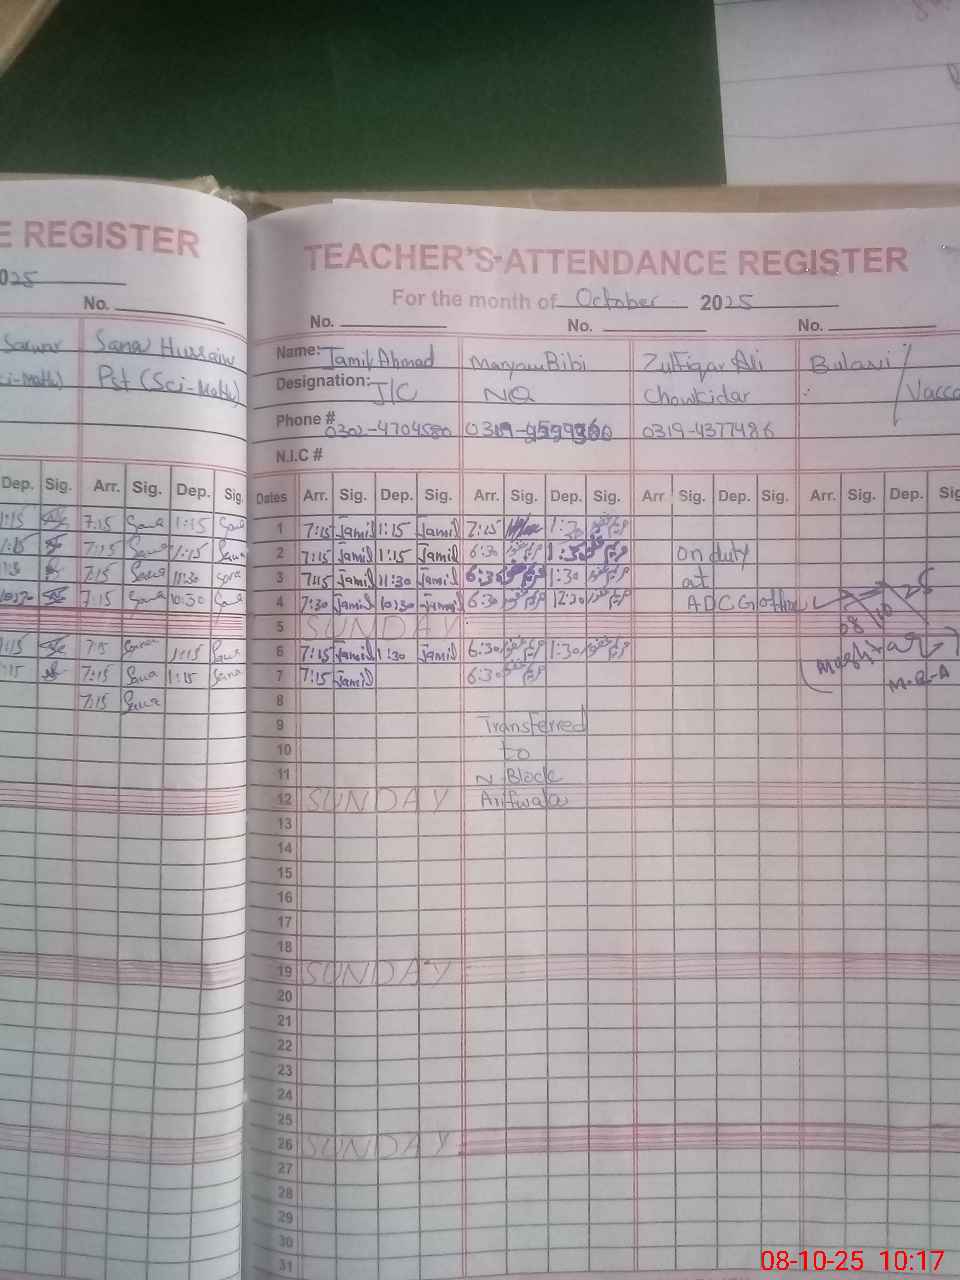 E REGISTER
2025
No.
Sarwar
Sana Hussain
Sci-Math)
Pst (Sci-Math)
Dep. Sig. Arr. Sig. Dep. Sig.
1:15 7:15 Sana 1:15 Sana
1:15 7:15 Sana 1:15 Sana
7:15 Sana 11:30 Sana
10:30 7:15 Sana 10:30 Sana
7:15 7:15 Sana 1:15 Sana
7:15 7:15 Sana 1:15 Sana
7:15 Sana
TEACHER'S ATTENDANCE REGISTER
For the month of October 2025
No. No. No.
Name: Jamil Ahmad Maryam Bibi Zulfiqar Ali
Designation: J/C NQ Chowkidar
Phone # 0302-4704580 0319-4377486
N.I.C #
Dates Arr. Sig. Dep. Sig. Arr. Sig. Dep. Sig. Arr. Sig. Dep. Sig. Arr. Sig. Dep. Sig
1 7:15 Jamil 1:15 Jamil 7:15 1:30
2 7:15 Jamil 1:15 Jamil 6:30 1:30 On duty
3 7:15 Jamil 11:30 Jamil 6:30 1:30 at
4 7:30 Jamil 10:30 Jamil 6:30 12:30 ADCG office
5 SUNDAY
6 7:15 Jamil 1:30 Jamil 6:30 1:30
7 7:15 Jamil 6:30
8
9 Transferred
10 to
11 N Block
12 SUNDAY Arifwala
13
14
15
16
17
18
19 SUNDAY
20
21
22
23
24
25
26 SUNDAY
27
28
29
30
31
08 10 25
M.E.A
08-10-25 10:17